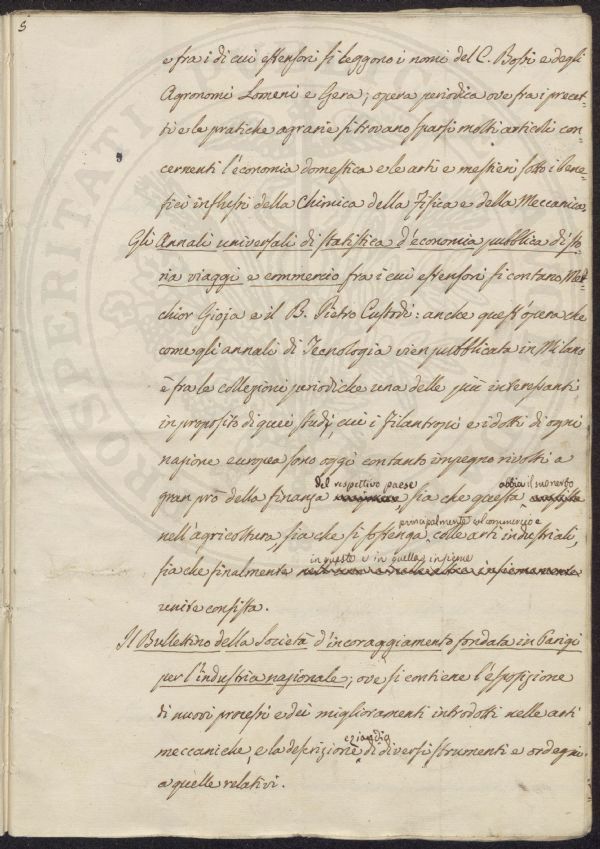 5
e fra i di cui estensori si leggono i nomi del C. Bossi e degli
Agronomi Lomeni e Gera; opera periodica ove fra i precet-
ti e le pratiche agrarie si trovano sparsi molti articoli con-
cernenti l'economia domestica e le arti e mestieri sotto i bene-
fici influssi della Chimica della Fisica e della Meccanica.
Gli Annali universali di statistica d'economia pubblica di sto-
ria viaggi e commercio fra i cui estensori si contano Mel-
chior Gioja e il B. Pietro Custodi: anche quest'opera che
come gli annali di Tecnologia vien pubblicata in Milano
è fra le collezioni periodiche una delle più interessanti
in proposito di quei studj, cui i filantropi e i dotti di ogni
nazione europea sono oggi con tanto impegno rivolti a
del respettivo paese abbia il suo nerbo
gran prò della finanza, sia che questa
principalmente col commercio e
nell'agricoltura, sia che si sostenga colle arti industriali,
in queste e in quella insieme
sia che finalmente
unite consista.
Il Bullettino della Società d'incoraggiamento fondata in Parigi
per l'industria nazionale; ove si contiene l'esposizione
di nuovi processi e dei miglioramenti introdotti nelle arti
eziandio
meccaniche, e la descrizione di diversi strumenti e ordegni
a quelle relativi.
PUBLICAE
PROSPERITATI